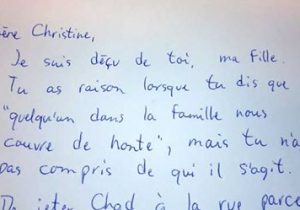 ère Christine,
Je suis déçu de toi, ma fille.
Tu as raison lorsque tu dis que
"quelqu'un dans la famille nous
couvre de honte", mais tu n'a
pas compris de qui il s'agit.
jeter Chad à la rue parce